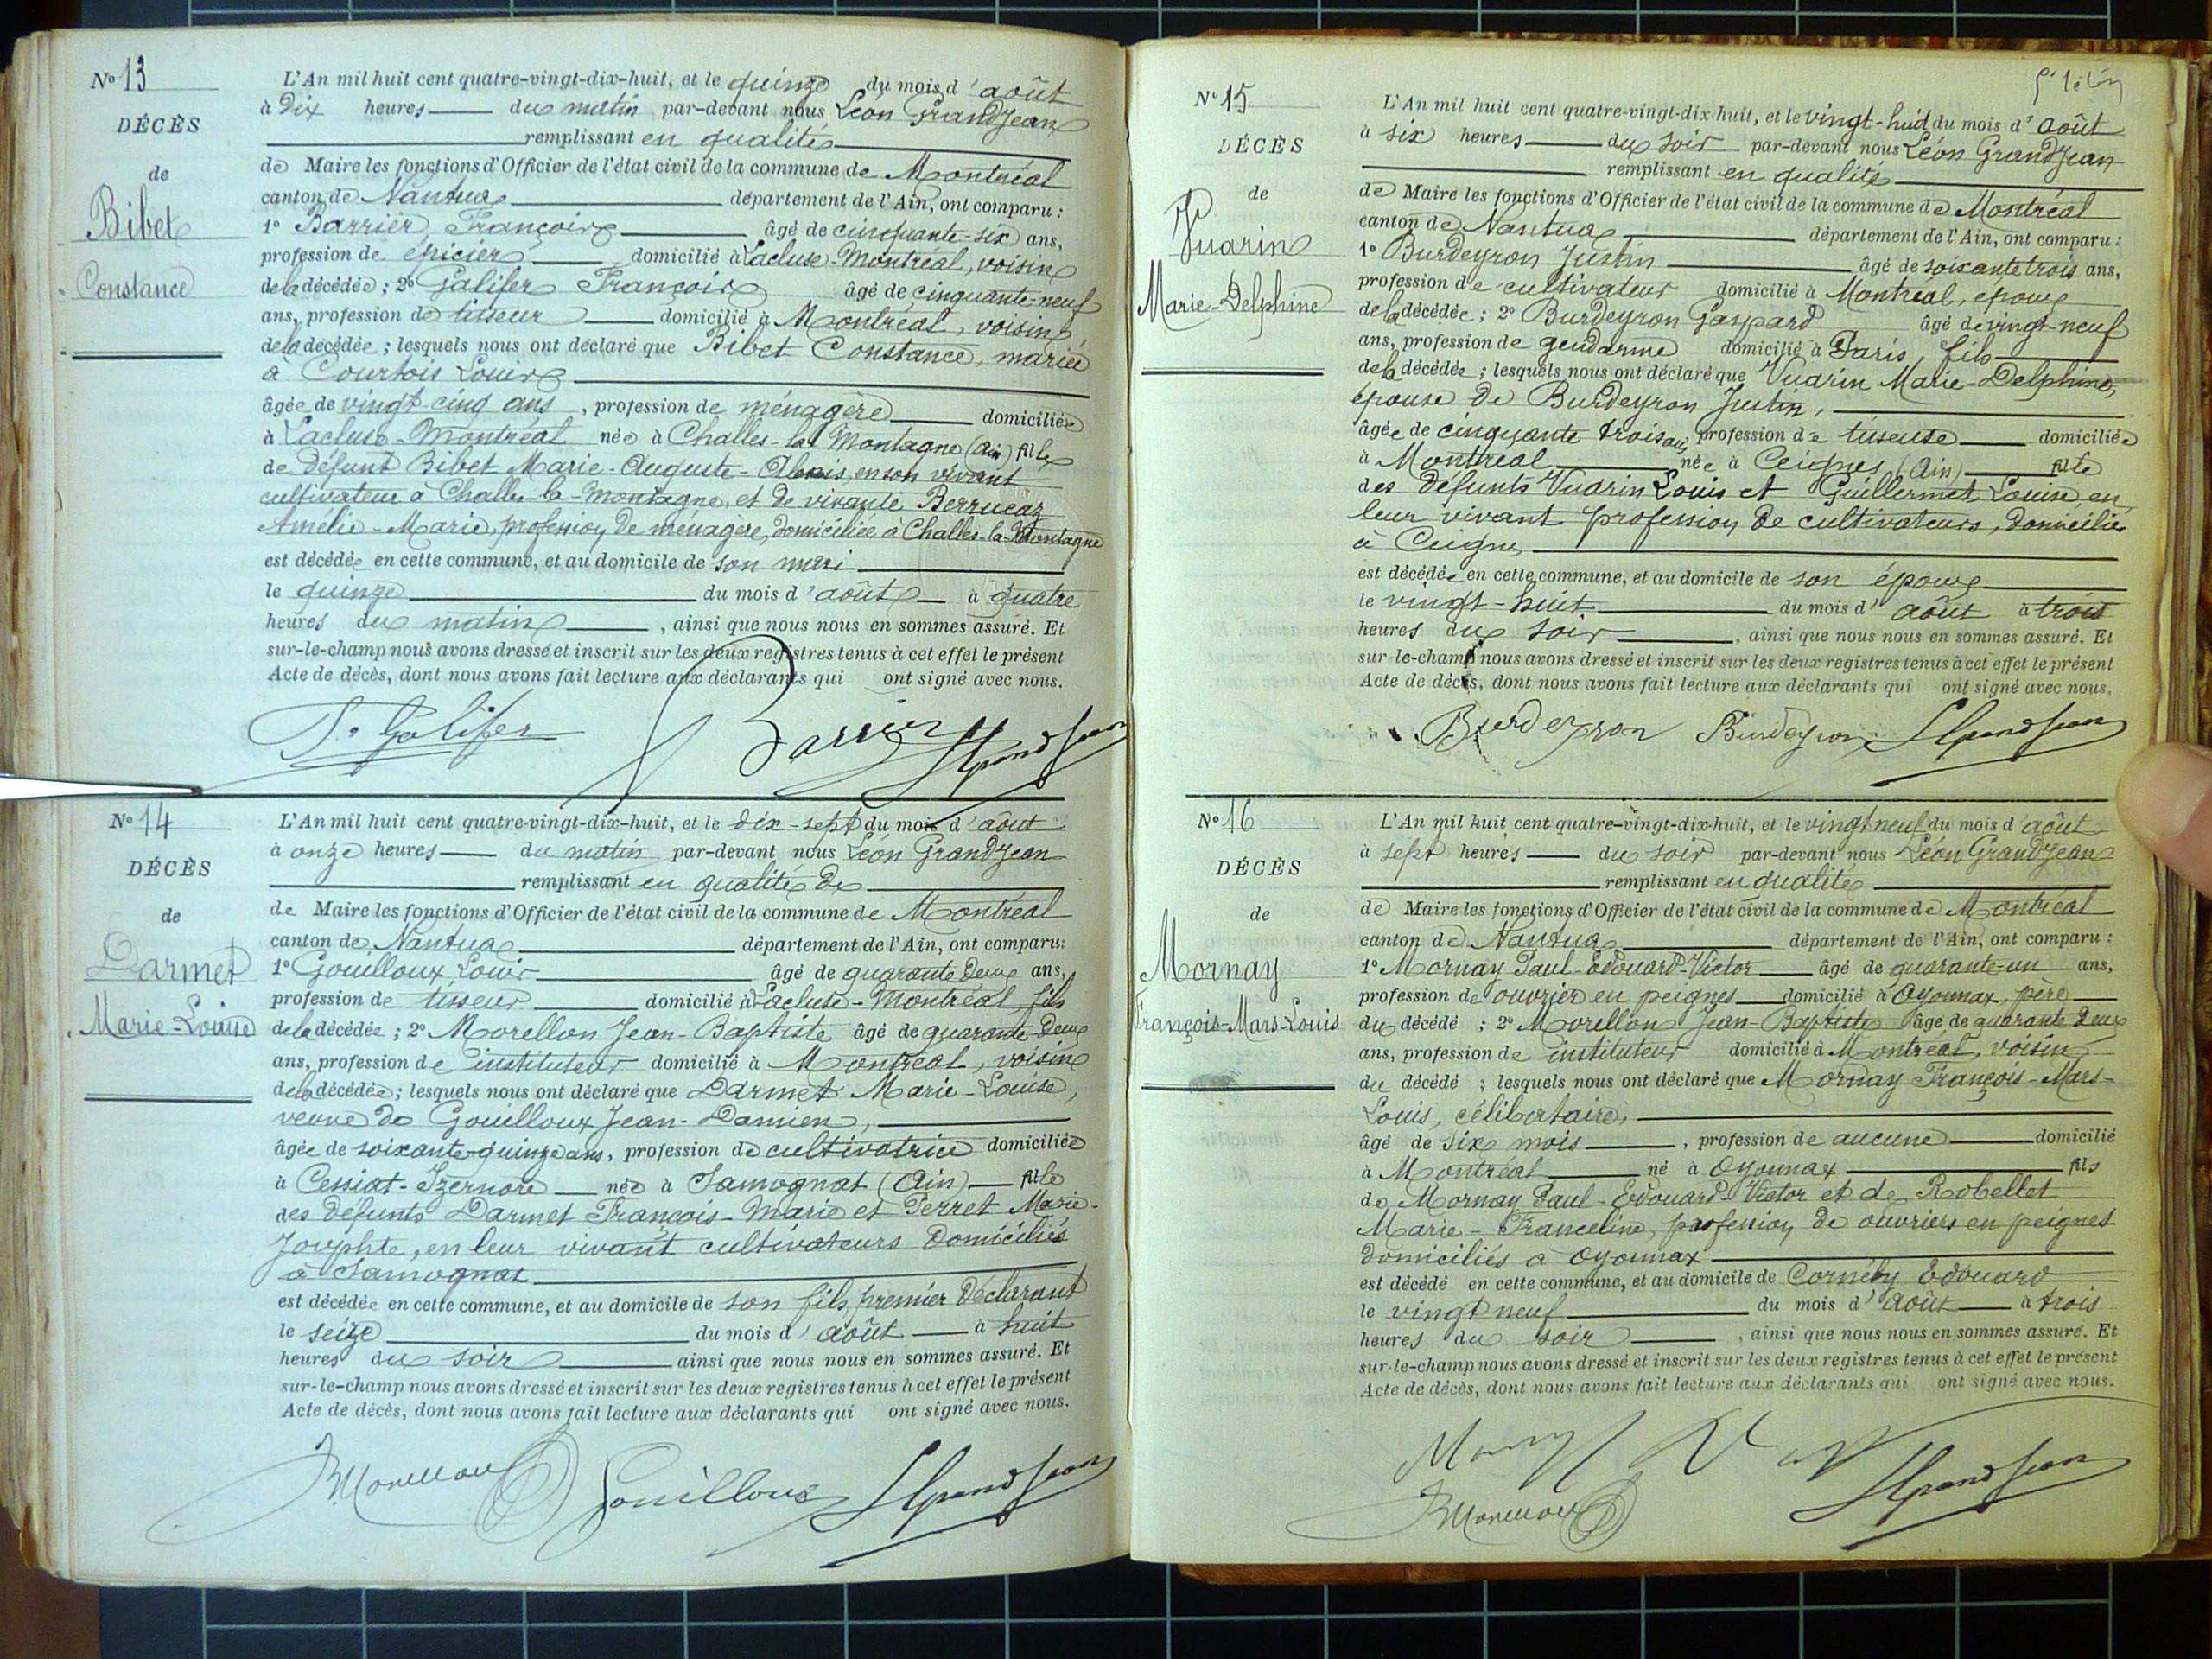 N° 13
DÉCÈS
de
Bibet
Constance
L'An mil huit cent quatre-vingt-dix-huit, et le quinze du mois d'août
à dix heures du matin par-devant nous Léon Grandjean
remplissant en qualité
de Maire les fonctions d'Officier de l'état civil de la commune de Montréal
canton de Nantua département de l'Ain, ont comparu :
1° Barrier François âgé de cinquante-six ans,
profession de épicier domicilié à Lacluse-Montréal, voisin
de la décédée ; 2° Galifer François âgé de cinquante-neuf
ans, profession de tisseur domicilié à Montréal, voisin
de la décédée ; lesquels nous ont déclaré que Bibet Constance, mariée
à Courtois Louis
âgée de vingt-cinq ans, profession de ménagère domiciliée
à Lacluse-Montréal née à Challes-la-Montagne (Ain) fille
de défunt Bibet Marie-Auguste-Alexis, en son vivant
cultivateur à Challes-la-Montagne, et de vivante Berrucaz
Amélie-Marie, profession de ménagère, domiciliée à Challes-la-Montagne
est décédée en cette commune, et au domicile de son mari
le quinze du mois d'août à quatre
heures du matin, ainsi que nous nous en sommes assuré. Et
sur-le-champ nous avons dressé et inscrit sur les deux registres tenus à cet effet le présent
Acte de décès, dont nous avons fait lecture aux déclarants qui ont signé avec nous.
Galifer Barrier LGrandjean
N° 14
DÉCÈS
de
Darmet
Marie-Louise
L'An mil huit cent quatre-vingt-dix-huit, et le dix-sept du mois d'août
à onze heures du matin par-devant nous Léon Grandjean
remplissant en qualité de
de Maire les fonctions d'Officier de l'état civil de la commune de Montréal
canton de Nantua département de l'Ain, ont comparu:
1° Gouilloux Louis âgé de quarante deux ans,
profession de tisseur domicilié à Lacluse-Montréal, fils
de la décédée ; 2° Morellon Jean-Baptiste âgé de quarante deux
ans, profession de instituteur domicilié à Montréal, voisin
de la décédée ; lesquels nous ont déclaré que Darmet Marie-Louise,
veuve de Gouilloux Jean-Damien,
âgée de soixante-quinze ans, profession de cultivatrice domiciliée
à Cessiat-Izernore née à Samognat (Ain) fille
des défunts Darmet François-Marie et Perret Marie-
Josephte, en leur vivant cultivateurs domiciliés
à Samognat
est décédée en cette commune, et au domicile de son fils, premier déclarant
le seize du mois d'août à huit
heures du soir ainsi que nous nous en sommes assuré. Et
sur-le-champ nous avons dressé et inscrit sur les deux registres tenus à cet effet le présent
Acte de décès, dont nous avons fait lecture aux déclarants qui ont signé avec nous.
Morellon Gouilloux LGrandjean
N° 15
DÉCÈS
de
Vuarin
Marie-Delphine
L'An mil huit cent quatre-vingt-dix-huit, et le vingt-huit du mois d'août
à six heures du soir par-devant nous Léon Grandjean
remplissant en qualité
de Maire les fonctions d'Officier de l'état civil de la commune de Montréal
canton de Nantua département de l'Ain, ont comparu :
1° Burdeyron Justin âgé de soixante trois ans,
profession de cultivateur domicilié à Montréal, époux
de la décédée ; 2° Burdeyron Gaspard âgé de vingt-neuf
ans, profession de gendarme domicilié à Paris, fils
de la décédée ; lesquels nous ont déclaré que Vuarin Marie-Delphine,
épouse de Burdeyron Justin,
âgée de cinquante trois ans, profession de tisseuse domiciliée
à Montréal née à Ceignes (Ain) fille
des défunts Vuarin Louis et Guillermet Louise en
leur vivant profession de cultivateurs, domiciliés
à Ceignes
est décédée en cette commune, et au domicile de son époux
le vingt-huit du mois d'août à trois
heures du soir, ainsi que nous nous en sommes assuré. Et
sur-le-champ nous avons dressé et inscrit sur les deux registres tenus à cet effet le présent
Acte de décès, dont nous avons fait lecture aux déclarants qui ont signé avec nous.
Burdeyron Burdeyron LGrandjean
N° 16
DÉCÈS
de
Mornay
François-Mars-Louis
L'An mil huit cent quatre-vingt-dix-huit, et le vingt neuf du mois d'août
à sept heures du soir par-devant nous Léon Grandjean
remplissant en qualité
de Maire les fonctions d'Officier de l'état civil de la commune de Montréal
canton de Nantua département de l'Ain, ont comparu :
1° Mornay Paul-Edouard-Victor âgé de quarante-un ans,
profession de ouvrier en peignes domicilié à Oyonnax, père
du décédé ; 2° Morellon Jean-Baptiste âgé de quarante deux
ans, profession de instituteur domicilié à Montréal, voisin
du décédé ; lesquels nous ont déclaré que Mornay François-Mars-
Louis, célibataire,
âgé de six mois, profession de aucune domicilié
à Montréal né à Oyonnax fils
de Mornay Paul-Edouard-Victor et de Robellet
Marie-Franceline, profession de ouvriers en peignes
domiciliés à Oyonnax
est décédé en cette commune, et au domicile de Cornéby Edouard
le vingt neuf du mois d'août à trois
heures du soir, ainsi que nous nous en sommes assuré. Et
sur-le-champ nous avons dressé et inscrit sur les deux registres tenus à cet effet le présent
Acte de décès, dont nous avons fait lecture aux déclarants qui ont signé avec nous.
Mornay LGrandjean
Morellon